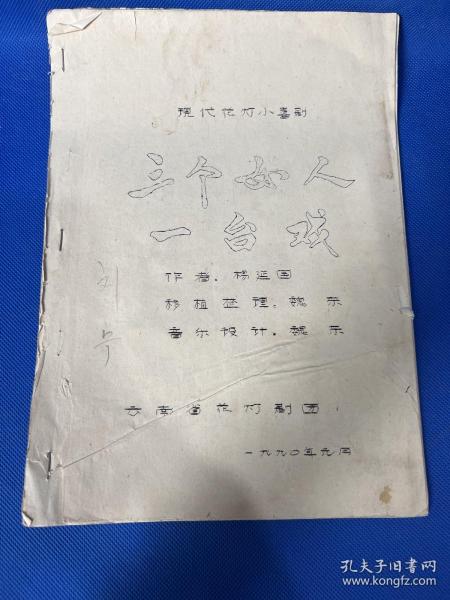 现代花灯小喜剧
三个女人
一台戏
作者:杨运国
移植整理:魏东
音乐设计:魏东
云南省花灯剧团
一九九〇年元月
孔夫子旧书网
www.kongfz.com